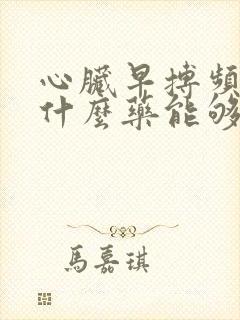 心臟早搏頻
什麼藥能够
馬嘉琪